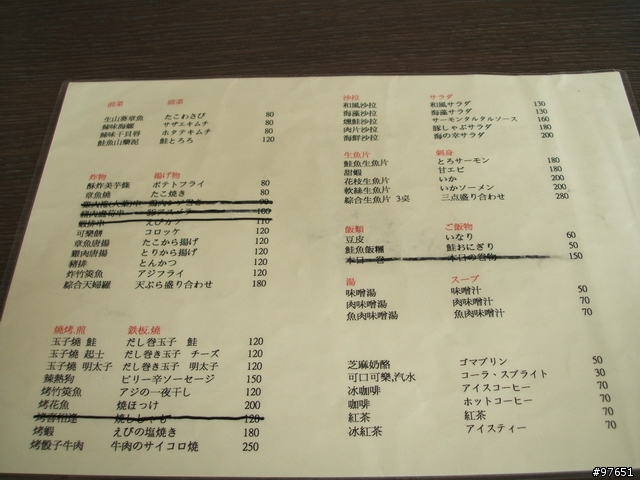 前菜 前菜
生山葵章魚 たこわさび 80
辣味海螺 サザエキムチ 80
辣味干貝唇 ホタテキムチ 80
鮭魚山藥泥 鮭とろろ 120
炸物 揚げ物
酥炸美芋條 ポテトフライ 80
章魚燒 たこ焼き 80
90
100
蝦排串 えびカツ 110
可樂餅 コロッケ 120
章魚唐揚 たこから揚げ 120
雞肉唐揚 とりから揚げ 120
豬排 とんかつ 120
炸竹筴魚 アジフライ 120
綜合天婦羅 天ぷら盛り合わせ 180
燒烤.煎 鉄板.焼
玉子燒 鮭 だし巻き玉子 鮭 120
玉子燒 起士 だし巻き玉子 チーズ 120
玉子燒 明太子 だし巻き玉子 明太子 120
辣熱狗 ピリー辛ソーセージ 150
烤竹筴魚 アジの一夜干し 120
烤花魚 焼ほっけ 200
烤喜相逢 焼ししゃも 120
烤蝦 えびの塩焼き 180
烤骰子牛肉 牛肉のサイコロ焼 250
沙拉 サラダ
和風沙拉 和風サラダ 130
海藻沙拉 海藻サラダ 130
燻鮭沙拉 サーモンタルタルソース 160
肉片沙拉 豚しゃぶサラダ 180
海鮮沙拉 海の幸サラダ 200
生魚片 刺身
鮭魚生魚片 とろサーモン 180
甜蝦 甘エビ 180
花枝生魚片 いか 200
軟絲生魚片 いかソーメン 200
綜合生魚片 3点 三点盛り合わせ 280
飯類 ご飯物
豆皮 いなり 60
鮭魚飯糰 鮭おにぎり 50
本日一卷 本日の巻物 150
湯 スープ
味噌湯 味噌汁 50
肉味噌湯 肉味噌汁 70
魚肉味噌湯 魚肉味噌汁 70
芝麻奶酪 ゴマプリン 50
可口可樂,汽水 コーラ・スプライト 30
冰咖啡 アイスコーヒー 70
咖啡 ホットコーヒー 70
紅茶 紅茶 70
冰紅茶 アイスティー 70
#97651